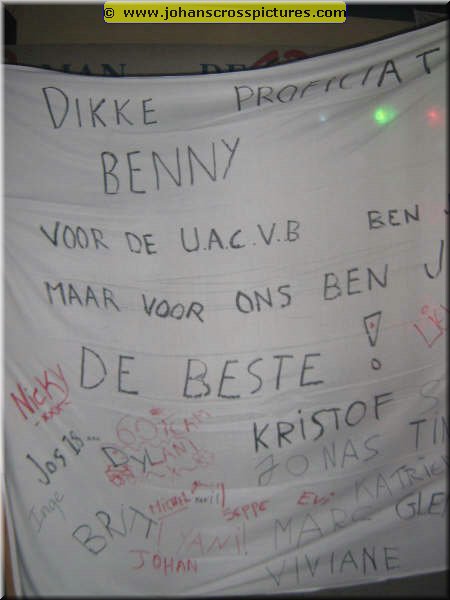 © www.johanscrosspictures.com
DIKKE PROFICIAT
BENNY
VOOR DE U.A.C.V.B BEN J
MAAR VOOR ONS BEN J
DE BESTE !
Nicky
Jos Is...
DYLAN
KRISTOF S
JONAS TIN
Inge
BRIT
Michel
SEPPE
Evi
KATRIEN
YANI!
MARC GLE
JOHAN
VIVIANE